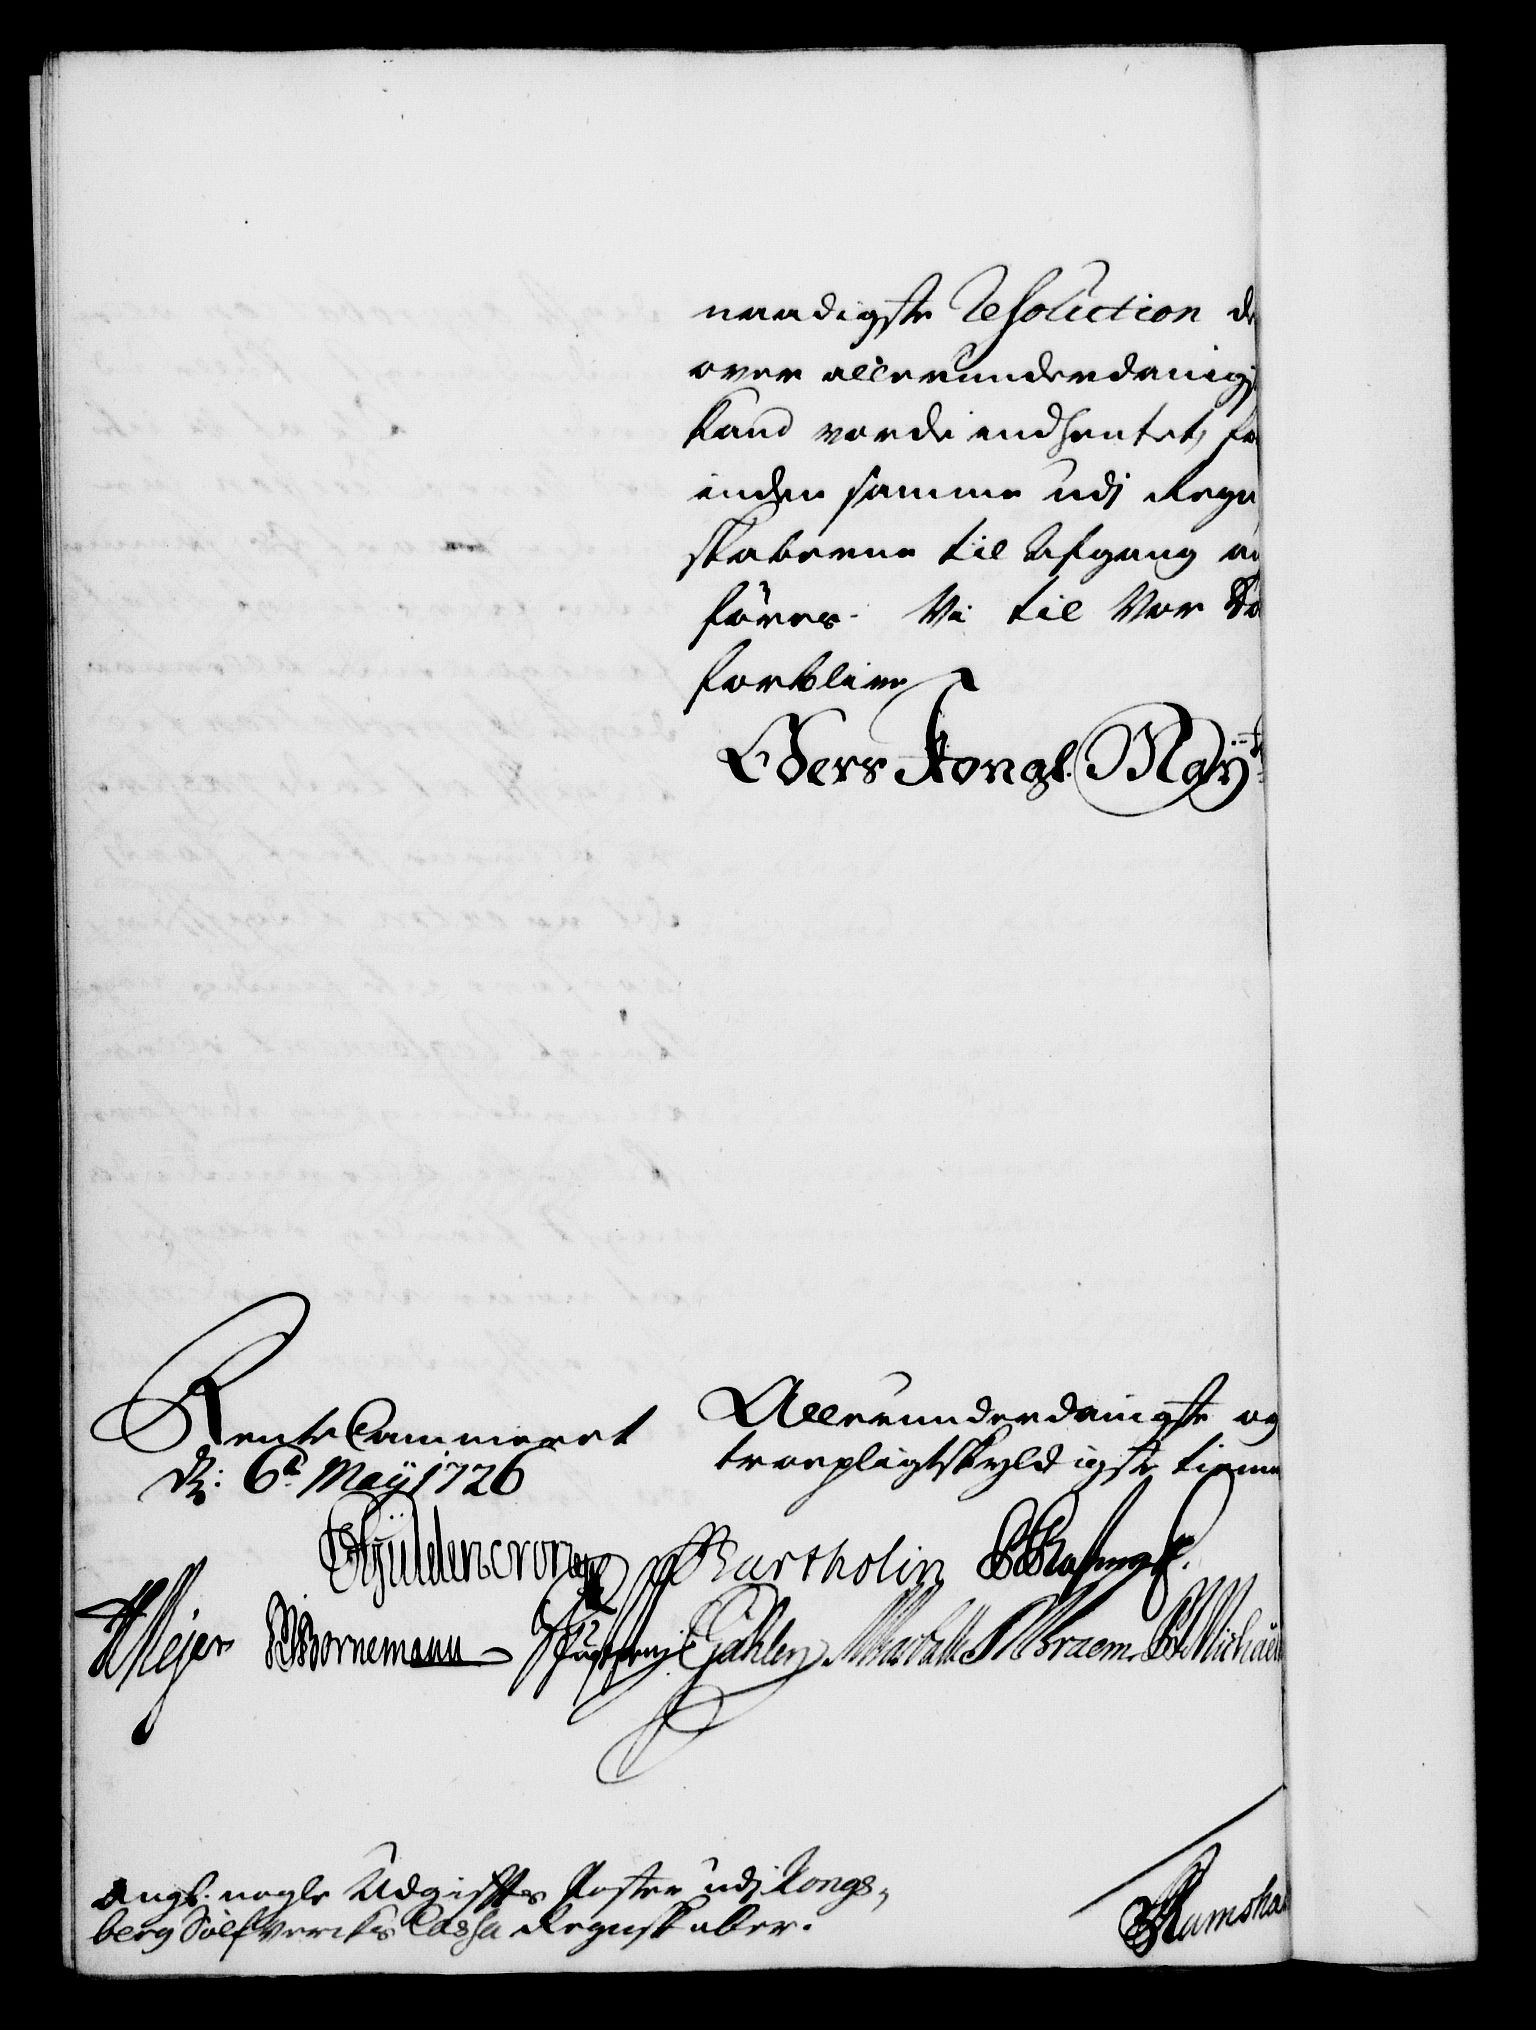 naadigste Resolution de
over allerunderdanigst
kand vorde indhentet, fo
inden samme udj Regn
skaberne til Afgang an
føres. Vi til Vor Dø
forblive
Eders Kongl. Maÿts
Rente Cammeret
d: 6te Maÿ 1726
Allerunderdanigste og
troepligtskyldigste tienne
Gÿldencrone Bartholin
Meÿer Bornemann Gähler Braem Michäel
Angl. nogle Udgiffts Poster udj Kongs-
berg Sølfvercks Cassa Regnskaber.
Ramshar